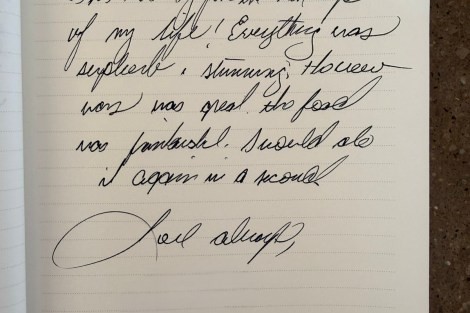 of my life! Everything was
superb & stunning.
was great. the food
was fantastic. I would do
it again in a second
Love always,